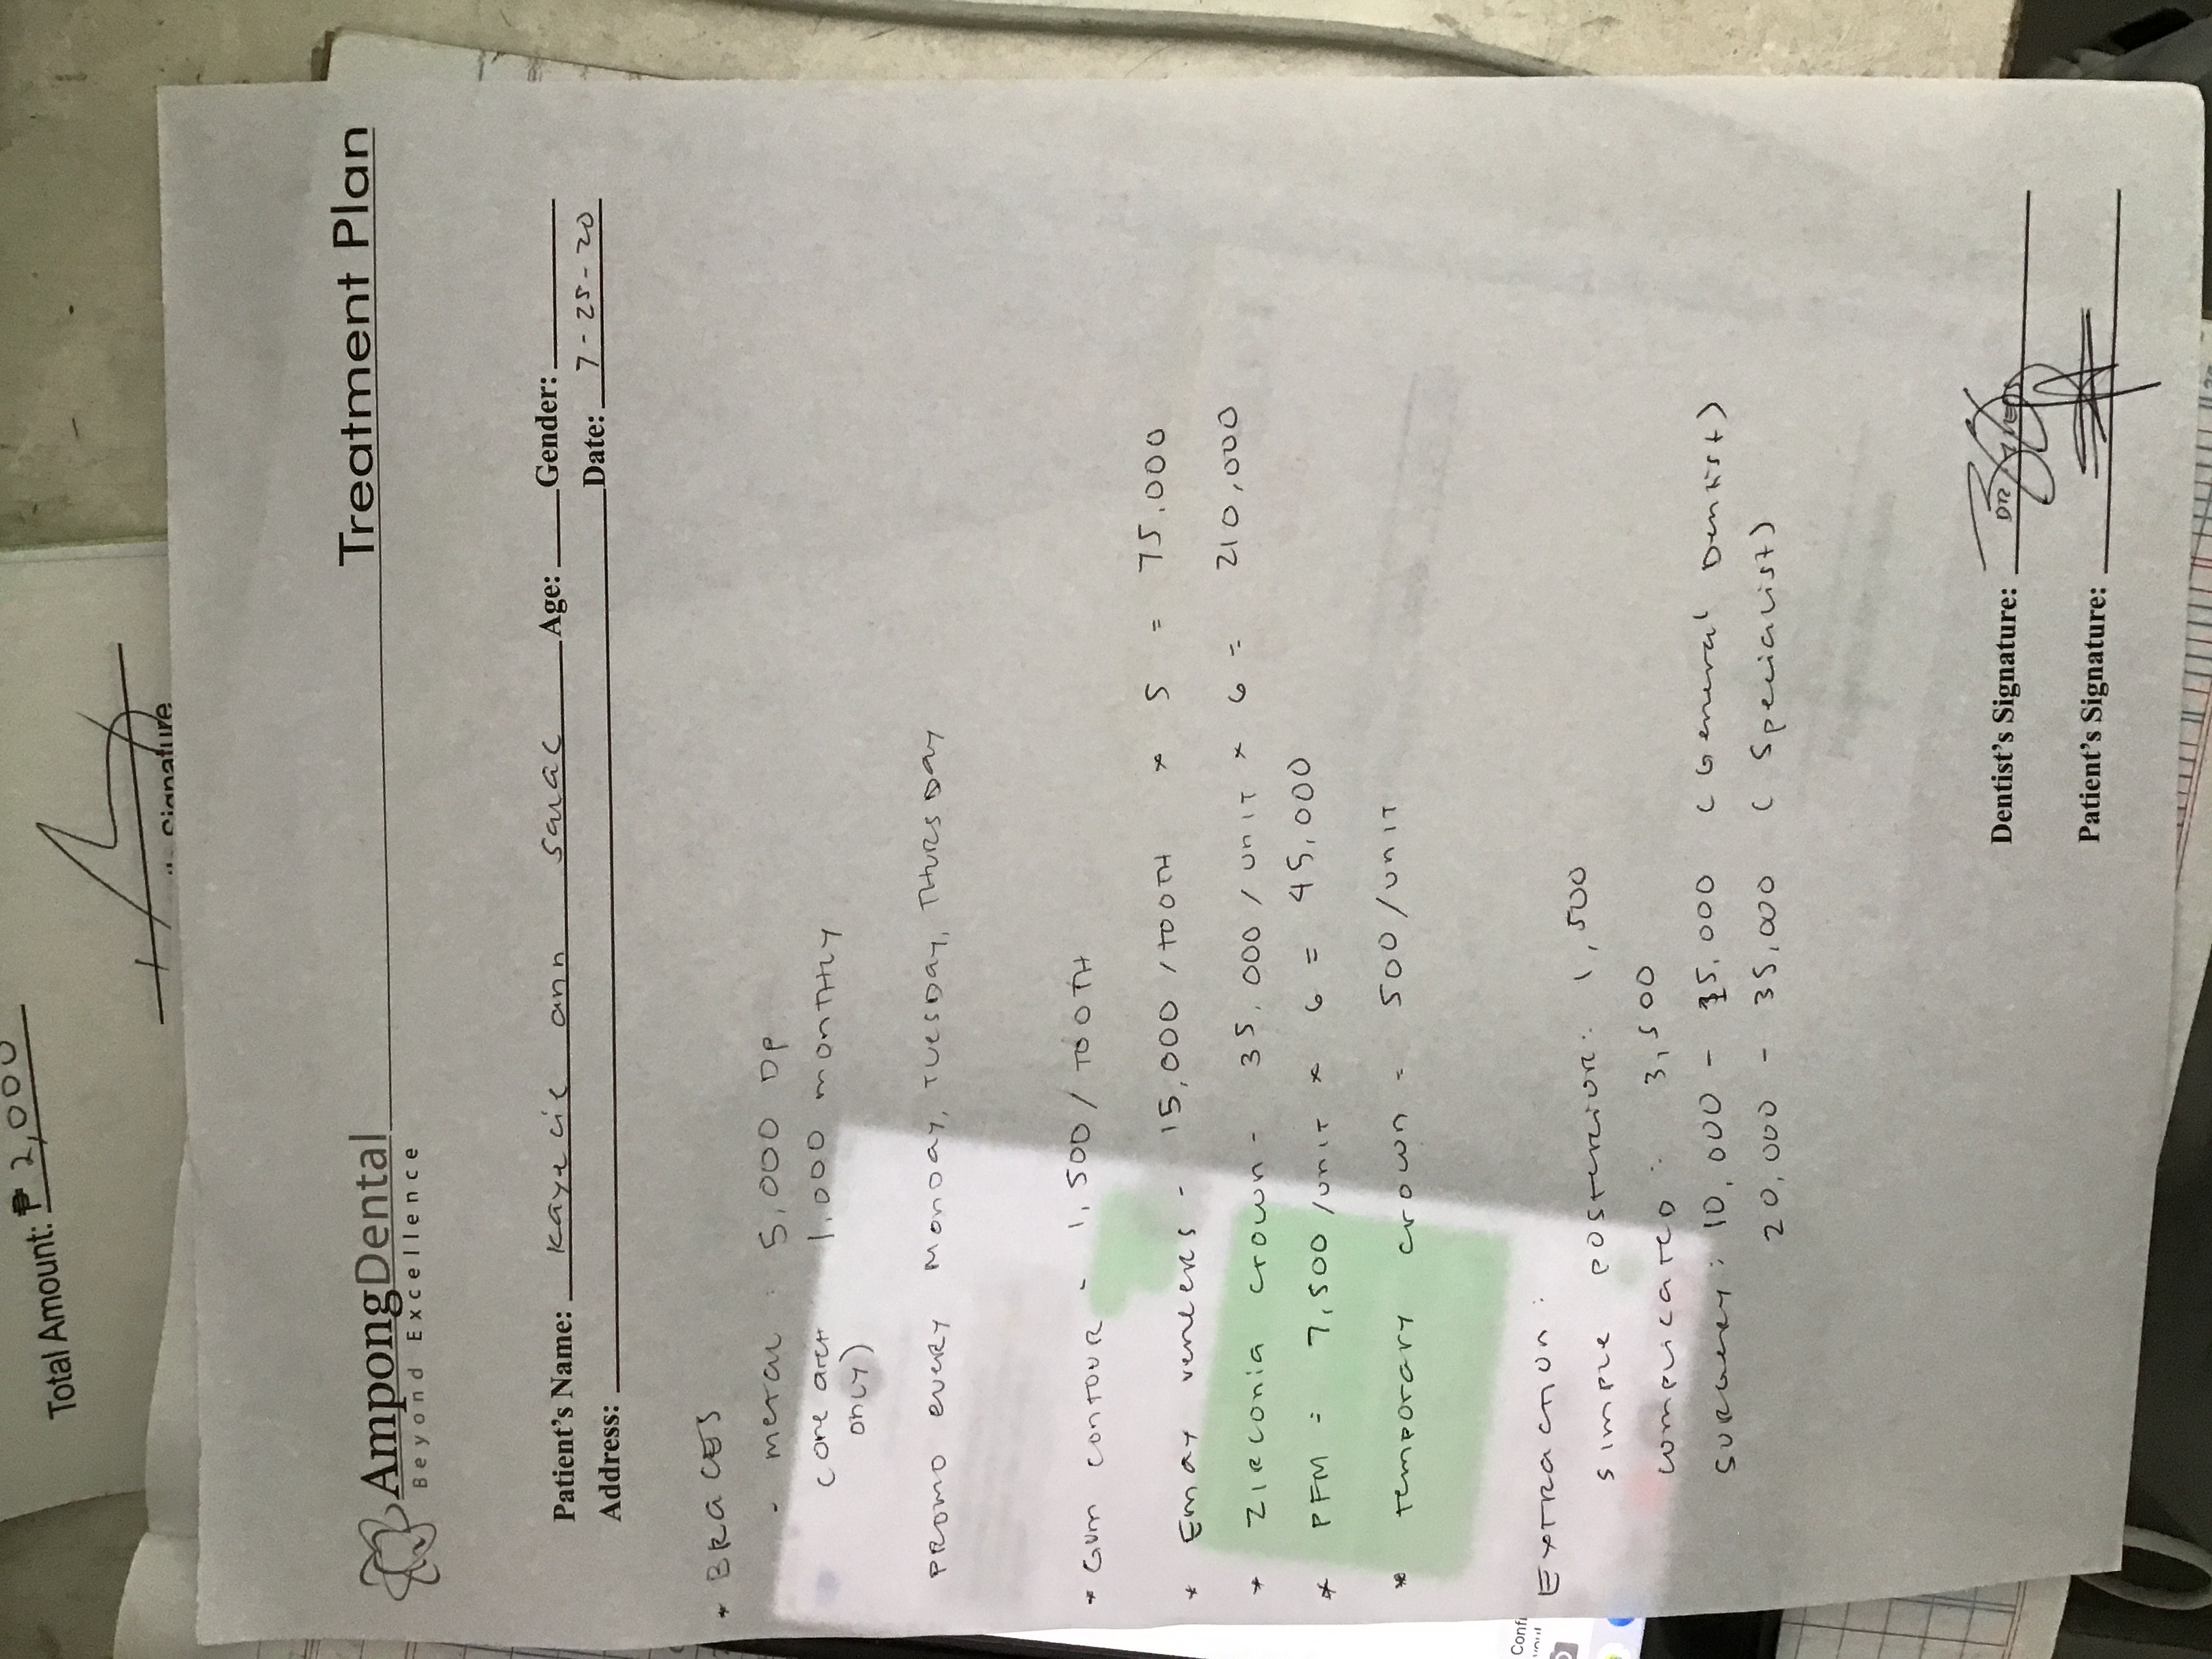 Total Amount: ₱ 2,000
Signature
AmpongDental
Beyond Excellence
Treatment Plan
Patient's Name: ann Age: Gender:
Address: Date: 7-25-20
* BRACES
- metal : 5,000 DP
(one arch 1,000 monthly
only)
PROMO EVERY MONDAY, TUESDAY, THURSDAY
* GUM CONTOUR - 1,500 / TOOTH
* Emax veneers - 15,000 / TOOTH × 5 = 75,000
* ZIRCONIA crown - 35,000 / UNIT × 6 = 210,000
* PFM = 7,500 /UNIT × 6 = 45,000
* temporary crown = 500 /UNIT
EXTRACTION :
SIMPLE POSTERIOR: 1,500
COMPLICATED : 3,500
SURGERY : 10,000 - 15,000 (General Dentist)
20,000 - 35,000 (Specialist)
Dentist's Signature: DR
Patient's Signature:
Confi